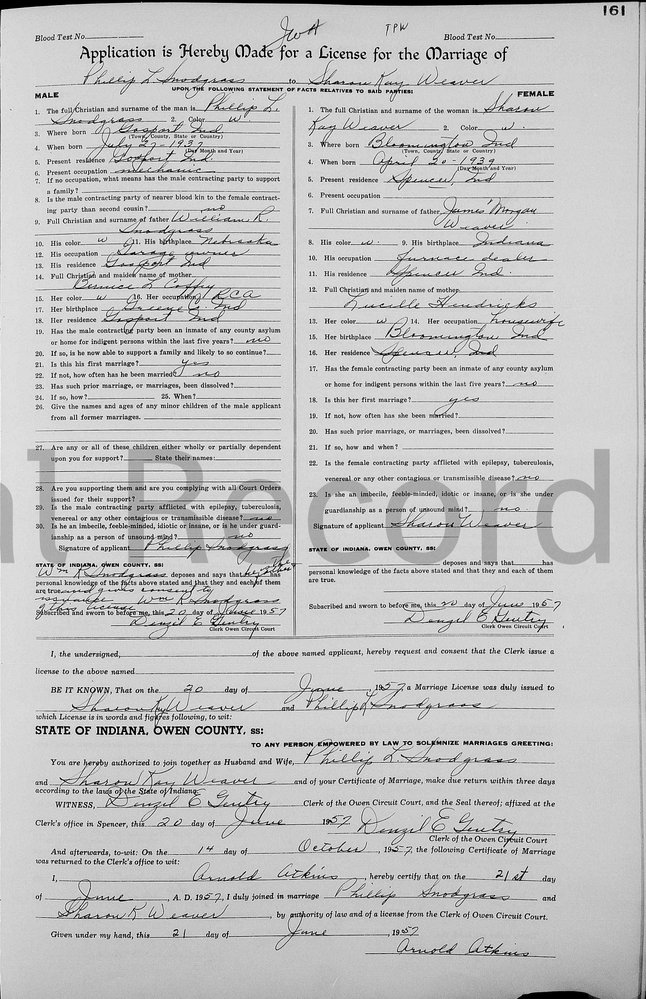 161
JWA TPW
Blood Test No. Blood Test No.
Application is Hereby Made for a License for the Marriage of
Phillip L Snodgrass to Sharon Kay Weaver
UPON THE FOLLOWING STATEMENT OF FACTS RELATIVES TO SAID PARTIES:
MALE
1. The full Christian and surname of the man is Phillip L.
Snodgrass 2. Color W
3. Where born Gosport Ind
(Town, County, State or Country)
4. When born July 27-1937
(Day Month and Year)
5. Present residence Gosport Ind
6. Present occupation mechanic
7. If no occupation, what means has the male contracting party to support
a family?
8. Is the male contracting party of nearer blood kin to the female contract-
ing party than second cousin? no
9. Full Christian and surname of father William R.
Snodgrass
10. His color w 11. His birthplace Nebraska
12. His occupation Garage owner
13. His residence Gosport Ind
14. Full Christian and maiden name of mother
Bernice L Coffey
15. Her color w 16. Her occupation RCA
17. Her birthplace Greene C. Ind
18. Her residence Gosport Ind
19. Has the male contracting party been an inmate of any county asylum
or home for indigent persons within the last five years? no
20. If so, is he now able to support a family and likely to so continue?
21. Is this his first marriage? yes
22. If not, how often has he been married? no
23. Has such prior marriage, or marriages, been dissolved?
24. If so, how? 25. When?
26. Give the names and ages of any minor children of the male applicant
from all former marriages.
27. Are any or all of these children either wholly or partially dependent
upon you for support? State their names:
28. Are you supporting them and are you complying with all Court Orders
issued for their support?
29. Is the male contracting party afflicted with epilepsy, tuberculosis,
venereal or any other contagious or transmissible disease? no
30. Is he an imbecile, feeble-minded, idiotic or insane, or is he under guard-
ianship as a person of unsound mind? no
Signature of applicant Phillip Snodgrass
STATE OF INDIANA, OWEN COUNTY, SS:
Wm R Snodgrass deposes and says that he the father has
personal knowledge of the facts above stated and that they and each of them
are true and gives consent to
issuance
of this license Wm R Snodgrass
Subscribed and sworn to before me, this 20 day of June 1957
Denzil E Gentry
Clerk Owen Circuit Court
FEMALE
1. The full Christian and surname of the woman is Sharon
Kay Weaver 2. Color w.
3. Where born Bloomington Ind
(Town, County, State or Country)
4. When born April 20-1939
(Day Month and Year)
5. Present residence Spencer, Ind
6. Present occupation
7. Full Christian and surname of father James Morgan
Weaver
8. His color w. 9. His birthplace Indiana
10. His occupation furnace dealer
11. His residence Spencer Ind.
12. Full Christian and maiden name of mother
Lucille Hendricks
13. Her color w 14. Her occupation housewife
15. Her birthplace Bloomington Ind
16. Her residence Spencer, Ind
17. Has the female contracting party been an inmate of any county asylum
or home for indigent persons within the last five years? no
18. Is this her first marriage? yes
19. If not, how often has she been married?
20. Has such prior marriage, or marriages, been dissolved?
21. If so, how and when?
22. Is the female contracting party afflicted with epilepsy, tuberculosis,
venereal or any other contagious or transmissible disease? no
23. Is she an imbecile, feeble-minded, idiotic or insane, or is she under
guardianship as a person of unsound mind? no
Signature of applicant Sharon Weaver
STATE OF INDIANA, OWEN COUNTY, SS:
deposes and says that has
personal knowledge of the facts above stated and that they and each of them
are true.
Subscribed and sworn to before me, this 20 day of June 1957
Denzil E Gentry
Clerk Owen Circuit Court
nt Record
I, the undersigned, of the above named applicant, hereby request and consent that the Clerk issue a
license to the above named
BE IT KNOWN, That on the 20 day of June, 1957, a Marriage License was duly issued to
Sharon Kay Weaver and Phillip L Snodgrass
which License is in words and figures following, to wit:
STATE OF INDIANA, OWEN COUNTY, SS:
TO ANY PERSON EMPOWERED BY LAW TO SOLEMNIZE MARRIAGES GREETING:
You are hereby authorized to join together as Husband and Wife, Phillip L Snodgrass
and Sharon Kay Weaver and of your Certificate of Marriage, make due return within three days
according to the laws of the State of Indiana.
WITNESS, Denzil E Gentry Clerk of the Owen Circuit Court, and the Seal thereof; affixed at the
Clerk's office in Spencer, this 20 day of June 1957 Denzil E Gentry
Clerk of the Owen Circuit Court
And afterwards, to-wit: On the 14 day of October, 1957, the following Certificate of Marriage
was returned to the Clerk's office to wit:
I, Arnold Atkins, hereby certify that on the 21st day
of June, A. D. 1957, I duly joined in marriage Phillip Snodgrass and
Sharon K Weaver, by authority of law and of a license from the Clerk of Owen Circuit Court.
Given under my hand, this 21 day of June, 1957
Arnold Atkins